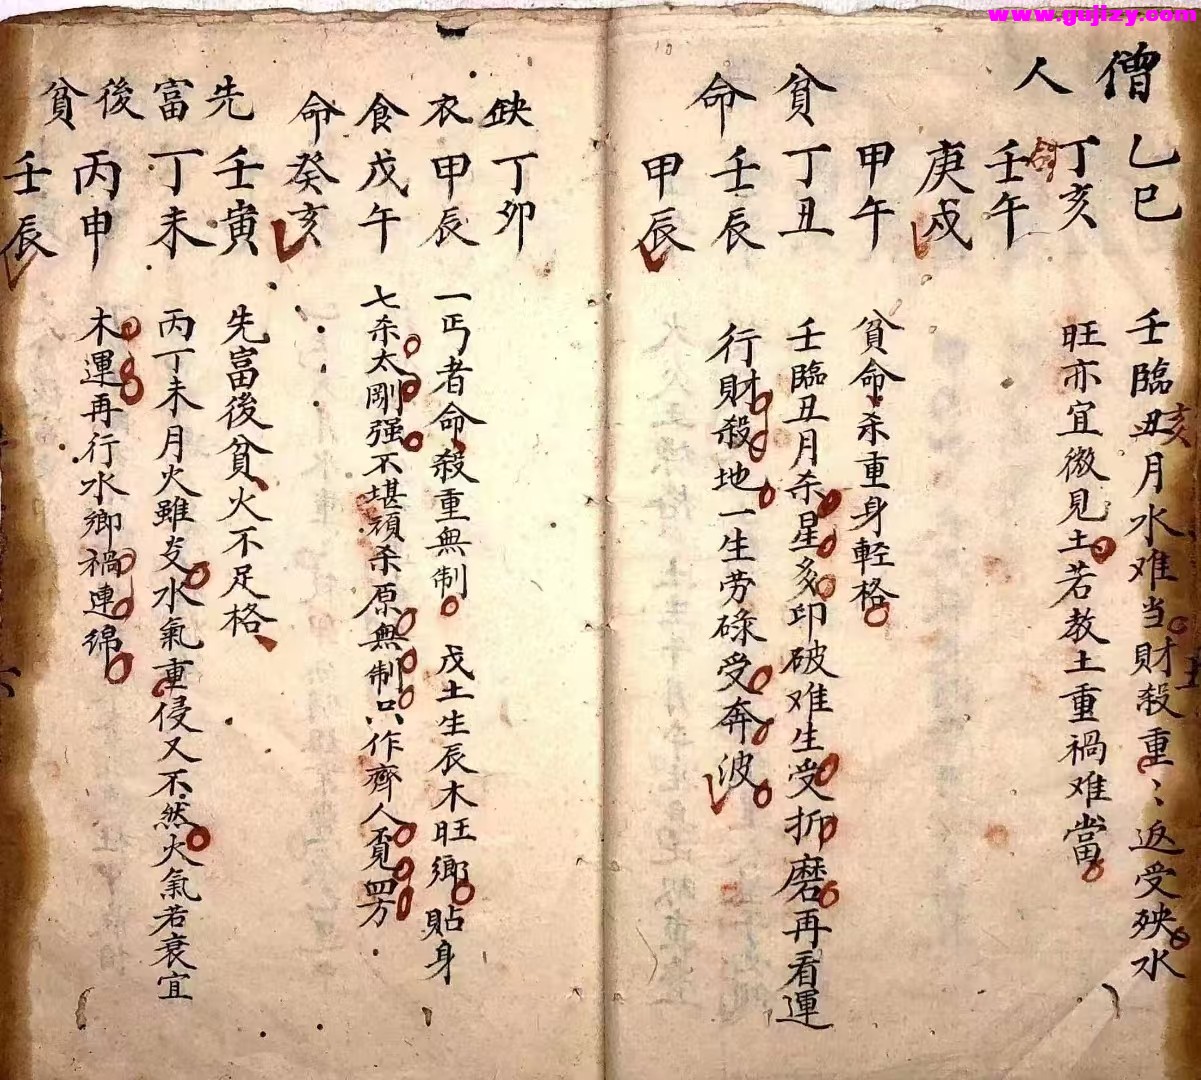 www.gujizy.com
僧人
乙巳
丁亥
壬午
庚戌
壬臨丑月水难当財殺重〻返受殃水
亥
旺亦宜微見土若教土重禍难當
貧命
甲午
丁丑
壬辰
甲辰
貧命杀重身輕格
壬臨丑月杀星多印破难生受折磨再看運
行財殺地一生劳碌受奔波
缺衣食命
丁卯
甲辰
戊午
癸亥
一丐者命殺重無制 戊土生辰木旺鄉貼身
七杀太剛强不堪頑杀原無制只作齊人覓四方
先富後貧
壬寅
丁未
丙申
壬辰
先富後貧火不足格
丙丁未月火雖炎水氣重侵又不然火氣若衰宜
木運再行水鄉禍連綿